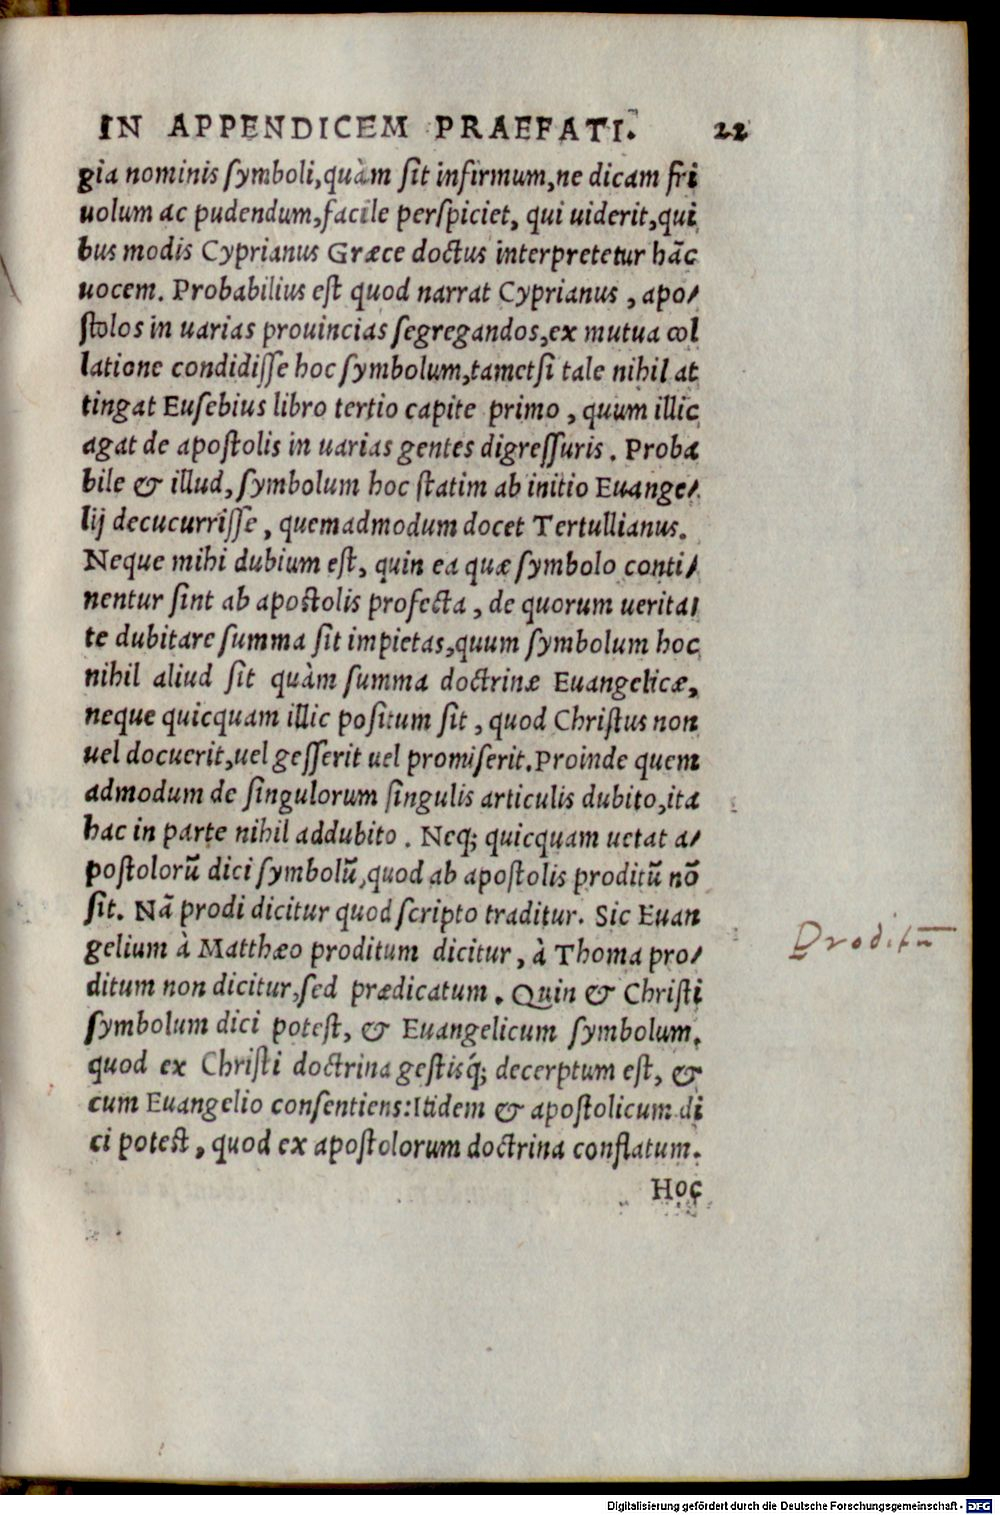 IN APPENDICEM PRAEFATI. 22
gia nominis ſymboli,quàm ſit infirmum,ne dicam fri
uolum ac pudendum,facile perſpiciet, qui uiderit,qui
bus modis Cyprianus Græce doctus interpretetur hãc
uocem. Probabilius eſt quod narrat Cyprianus , apo/
ſtolos in uarias prouincias ſegregandos,ex mutua col
latione condidiſſe hoc ſymbolum,tametſi tale nihil at
tingat Euſebius libro tertio capite primo , quum illic
agat de apoſtolis in uarias gentes digreſſuris. Proba
bile & illud, ſymbolum hoc ſtatim ab initio Euange/
lij decucurriſſe , quemadmodum docet Tertullianus.
Neque mihi dubium eſt, quin ea quæ ſymbolo conti/
nentur ſint ab apoſtolis profecta , de quorum uerita/
te dubitare ſumma ſit impietas,quum ſymbolum hoc
nihil aliud ſit quàm ſumma doctrinæ Euangelicæ,
neque quicquam illic poſitum ſit , quod Chriſtus non
uel docuerit,uel geſſerit uel promiſerit.Proinde quem
admodum de ſingulorum ſingulis articulis dubito,ita
hac in parte nihil addubito . Neq; quicquam uetat a/
poſtolorũ dici ſymbolũ,quod ab apoſtolis proditũ nõ
ſit. Nã prodi dicitur quod ſcripto traditur. Sic Euan
gelium à Matthæo proditum dicitur, à Thoma pro/
ditum non dicitur,ſed prædicatum . Quin & Chriſti
ſymbolum dici poteſt, & Euangelicum ſymbolum,
quod ex Chriſti doctrina geſtisq́; decerptum eſt, &
cum Euangelio conſentiens:Itidem & apoſtolicum di
ci poteſt , quod ex apoſtolorum doctrina conflatum.
Hoc
Proditũ
Digitalisierung gefördert durch die Deutsche Forschungsgemeinschaft - DFG